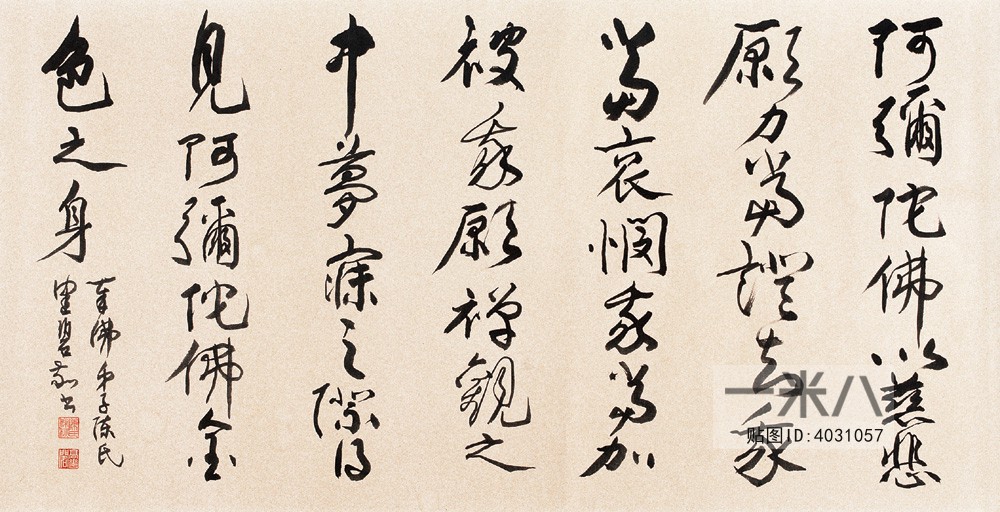 阿彌陀佛以慈悲
願力當證知我
當哀憫我當加
被我願禪觀之
中夢寐之際得
見阿彌陀佛金
色之身
奉佛弟子陳氏
書
一米八
贴图ID:4031057